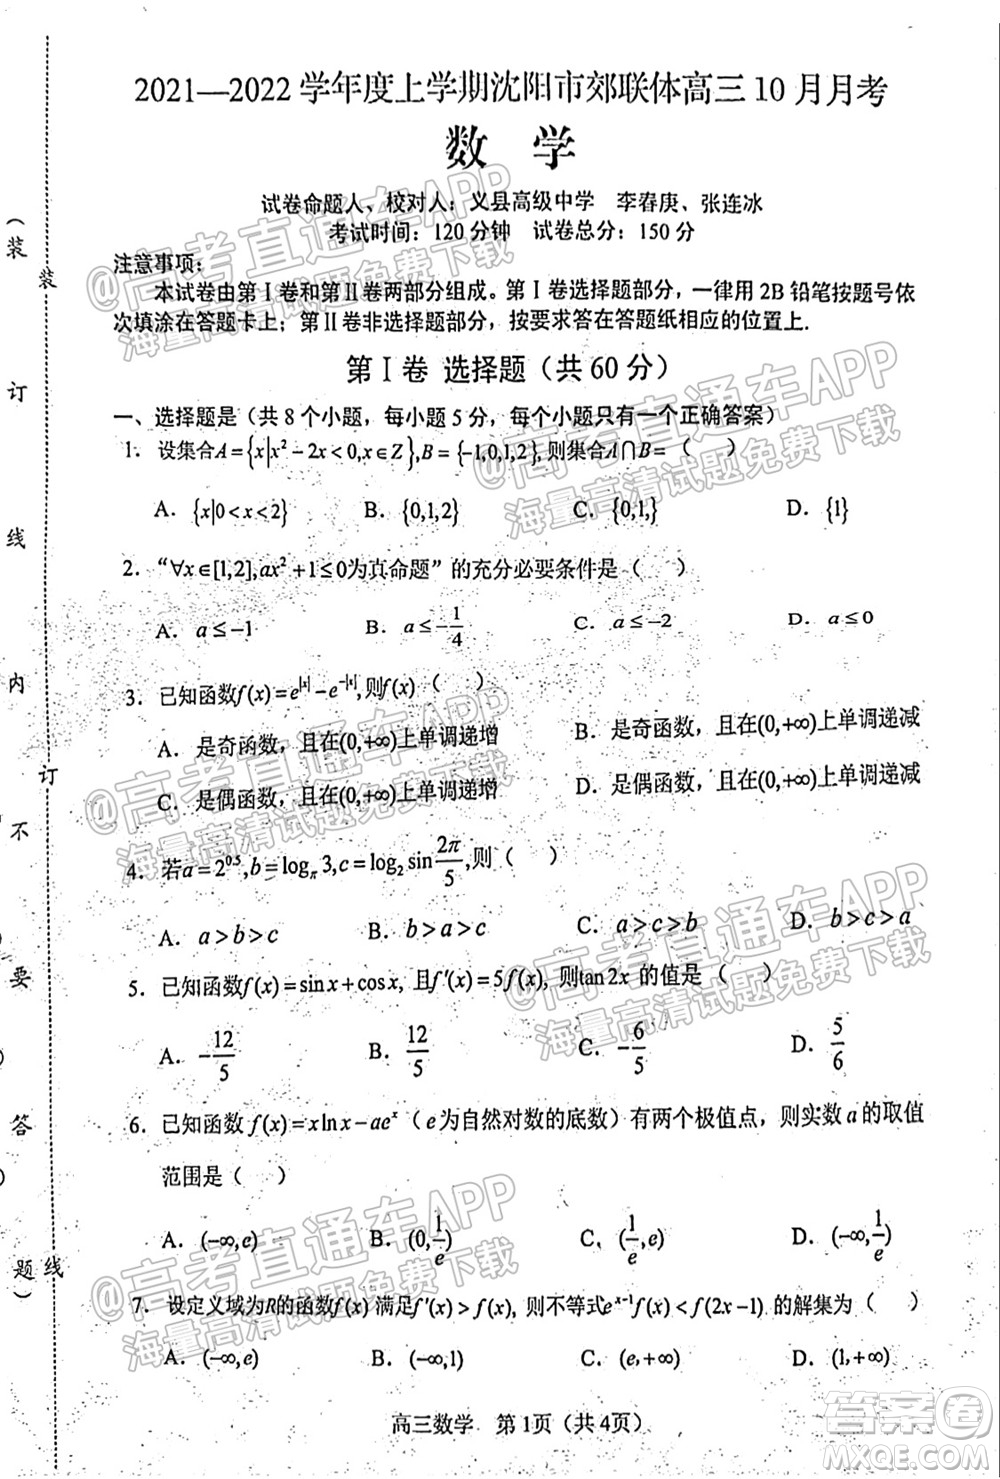 2021—2022学年度上学期沈阳市郊联体高三10月月考
数 学
试卷命题人、校对人：义县高级中学 李春庚、张连冰
考试时间：120分钟 试卷总分：150分
注意事项：
本试卷由第Ⅰ卷和第Ⅱ卷两部分组成。第Ⅰ卷选择题部分，一律用2B铅笔按题号依
次填涂在答题卡上；第Ⅱ卷非选择题部分，按要求答在答题纸相应的位置上.
第Ⅰ卷 选择题（共60分）
一、选择题是（共8个小题，每小题5分，每个小题只有一个正确答案）
1. 设集合A={x|x²-2x<0,x∈Z},B={-1,0,1,2},则集合A∩B=（ ）
A. {x|0<x<2} B. {0,1,2} C. {0,1,} D. {1}
2. “∀x∈[1,2],ax²+1≤0为真命题”的充分必要条件是（ ）
A. a≤-1 B. a≤-1/4 C. a≤-2 D. a≤0
3. 已知函数f(x)=e^|x|-e^-|x|,则f(x)（ ）
A. 是奇函数，且在(0,+∞)上单调递增 B. 是奇函数，且在(0,+∞)上单调递减
C. 是偶函数，且在(0,+∞)上单调递增 D. 是偶函数，且在(0,+∞)上单调递减
4. 若a=2^0.5,b=log_π 3,c=log₂ sin 2π/5,则（ ）
A. a>b>c B. b>a>c C. a>c>b D. b>c>a
5. 已知函数f(x)=sinx+cosx, 且f'(x)=5f(x), 则tan2x的值是（ ）
A. -12/5 B. 12/5 C. -6/5 D. 5/6
6. 已知函数f(x)=xlnx-ae^x（e为自然对数的底数）有两个极值点，则实数a的取值
范围是（ ）
A. (-∞,e) B. (0,1/e) C. (1/e,e) D. (-∞,1/e)
7. 设定义域为R的函数f(x)满足f'(x)>f(x), 则不等式e^(x-1)f(x)<f(2x-1)的解集为（ ）
A. (-∞,e) B. (-∞,1) C. (e,+∞) D. (1,+∞)
高三数学 第1页（共4页）
（装 订 线 内 不 要 答 题）
装 订 线
@高考直通车APP
海量高清试题免费下载
@高考直通车APP
海量高清试题免费下载
@高考直通车APP
海量高清试题免费下载
@高考直通车APP
海量高清试题免费下载
@高考直通车APP
海量高清试题免费下载
答案卷
MXQE.COM